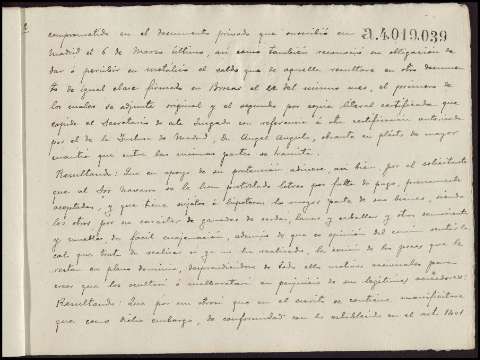 A.4.019.039
comprometido en el documento privado que suscribió en
Madrid el 6 de Marzo último, así como también reconoció su obligación de
dar ó percibir en metálico el saldo que de aquella resultare en otro documen-
to de igual clase firmado en el del mismo mes, el primero de
los cuales se adjunta original y el segundo por copia literal certificada que
expide el Secretario de este Juzgado con referencia á otra certificación autorizada
por el de la Inclusa de Madrid, Dn. Angel Angulo, obrante en pleito de mayor
cuantía que entre las mismas partes se tramita.
Resultando: Que en apoyo de su pretensión aduce, así bien por el solicitante
que al Sor. Navarro se le han protestado letras por falta de pago, previamente
aceptadas, y que tiene sujetos á hipotecas la mayor parte de sus bienes, siendo
los otros por su carácter de ganados de cerda, lanar y caballar y otros semovientes
y muebles de fácil enajenación, además de que es opinión del común sentir la
cual que trata de realizar si ya no ha realizado, la cesión de los pocos que le
restan en pleno dominio, desprendiéndose de todo ello motivos racionales para
creer que los ocultará ó malbaratará en perjuicio de sus legítimos acreedores:
Resultando: Que por un otrosí que en el escrito se contiene, manifiesta
que caso dicho embargo, de conformidad con lo establecido en el art. 1401